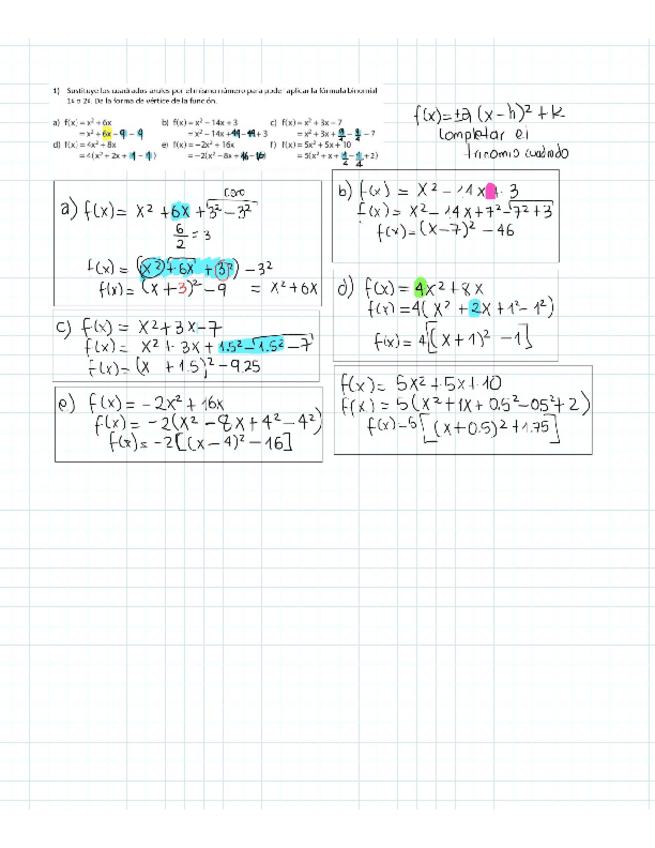 1) Sustituye los cuadrados azules por el mismo número para poder aplicar la fórmula binomial
1a o 2a. De la forma de vértice de la función.
a) f(x) = x² + 6x b) f(x) = x² − 14x + 3 c) f(x) = x² + 3x − 7
= x² + 6x − 9 − 9 = x² − 14x + 49 − 49 + 3 = x² + 3x + − − 7
d) f(x) = 4x² + 8x e) f(x) = −2x² + 16x f) f(x) = 5x² + 5x + 10
= 4(x² + 2x + 1 − 1) = −2(x² − 8x + 16 − 16) = 5(x² + x + − + 2)
f(x) = ±a (x − h)² + k
Completar el
trinomio cuadrado
a) f(x) = x² + 6x + 3² − 3²
6/2 = 3
f(x) = (x²) + 6x + (3²) − 3²
f(x) = (x + 3)² − 9 = x² + 6x
b) f(x) = x² − 14x + 3
f(x) = x² − 14x + 7² − 7² + 3
f(x) = (x − 7)² − 46
c) f(x) = x² + 3x − 7
f(x) = x² + 3x + 1.5² − 1.5² − 7
f(x) = (x + 1.5)² − 9.25
d) f(x) = 4x² + 8x
f(x) = 4(x² + 2x + 1² − 1²)
f(x) = 4[(x + 1)² − 1]
e) f(x) = −2x² + 16x
f(x) = −2(x² − 8x + 4² − 4²)
f(x) = −2[(x − 4)² − 16]
f(x) = 5x² + 5x + 10
f(x) = 5(x² + 1x + 0.5² − 0.5² + 2)
f(x) = 5[(x + 0.5)² + 1.75]